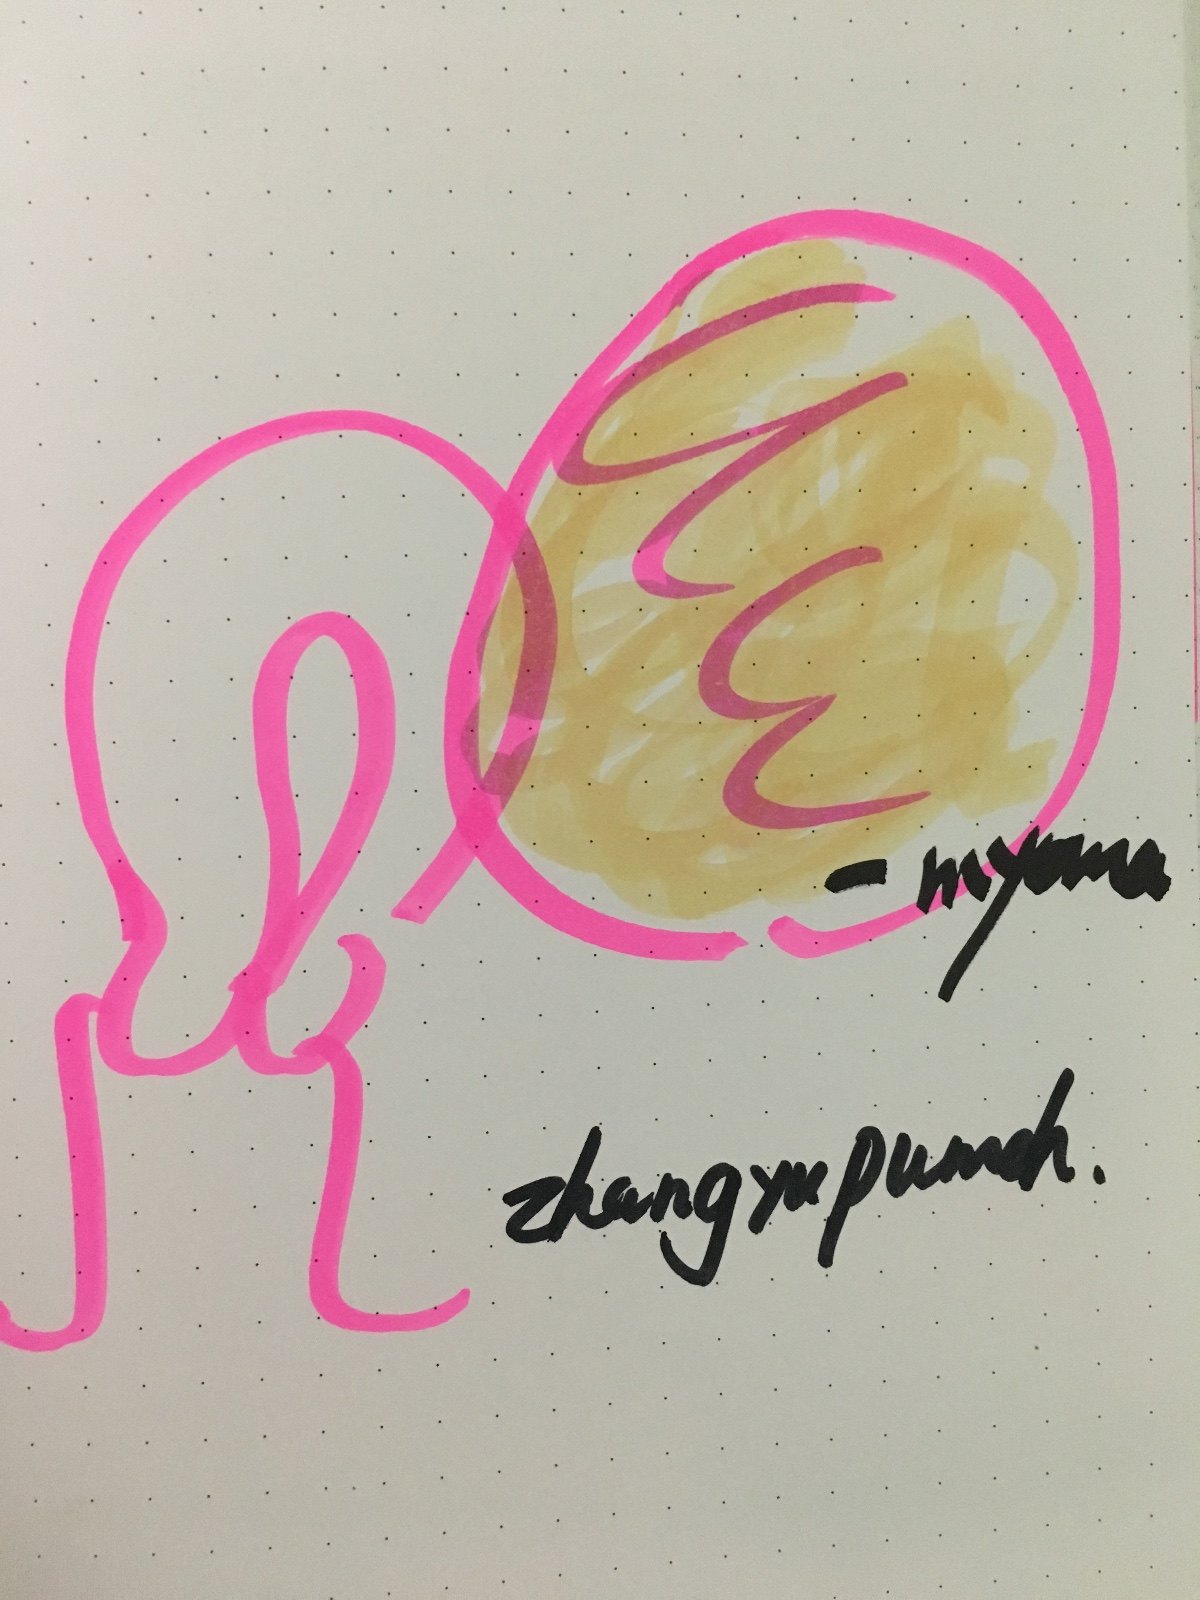 - myoma
zhangyupumch.